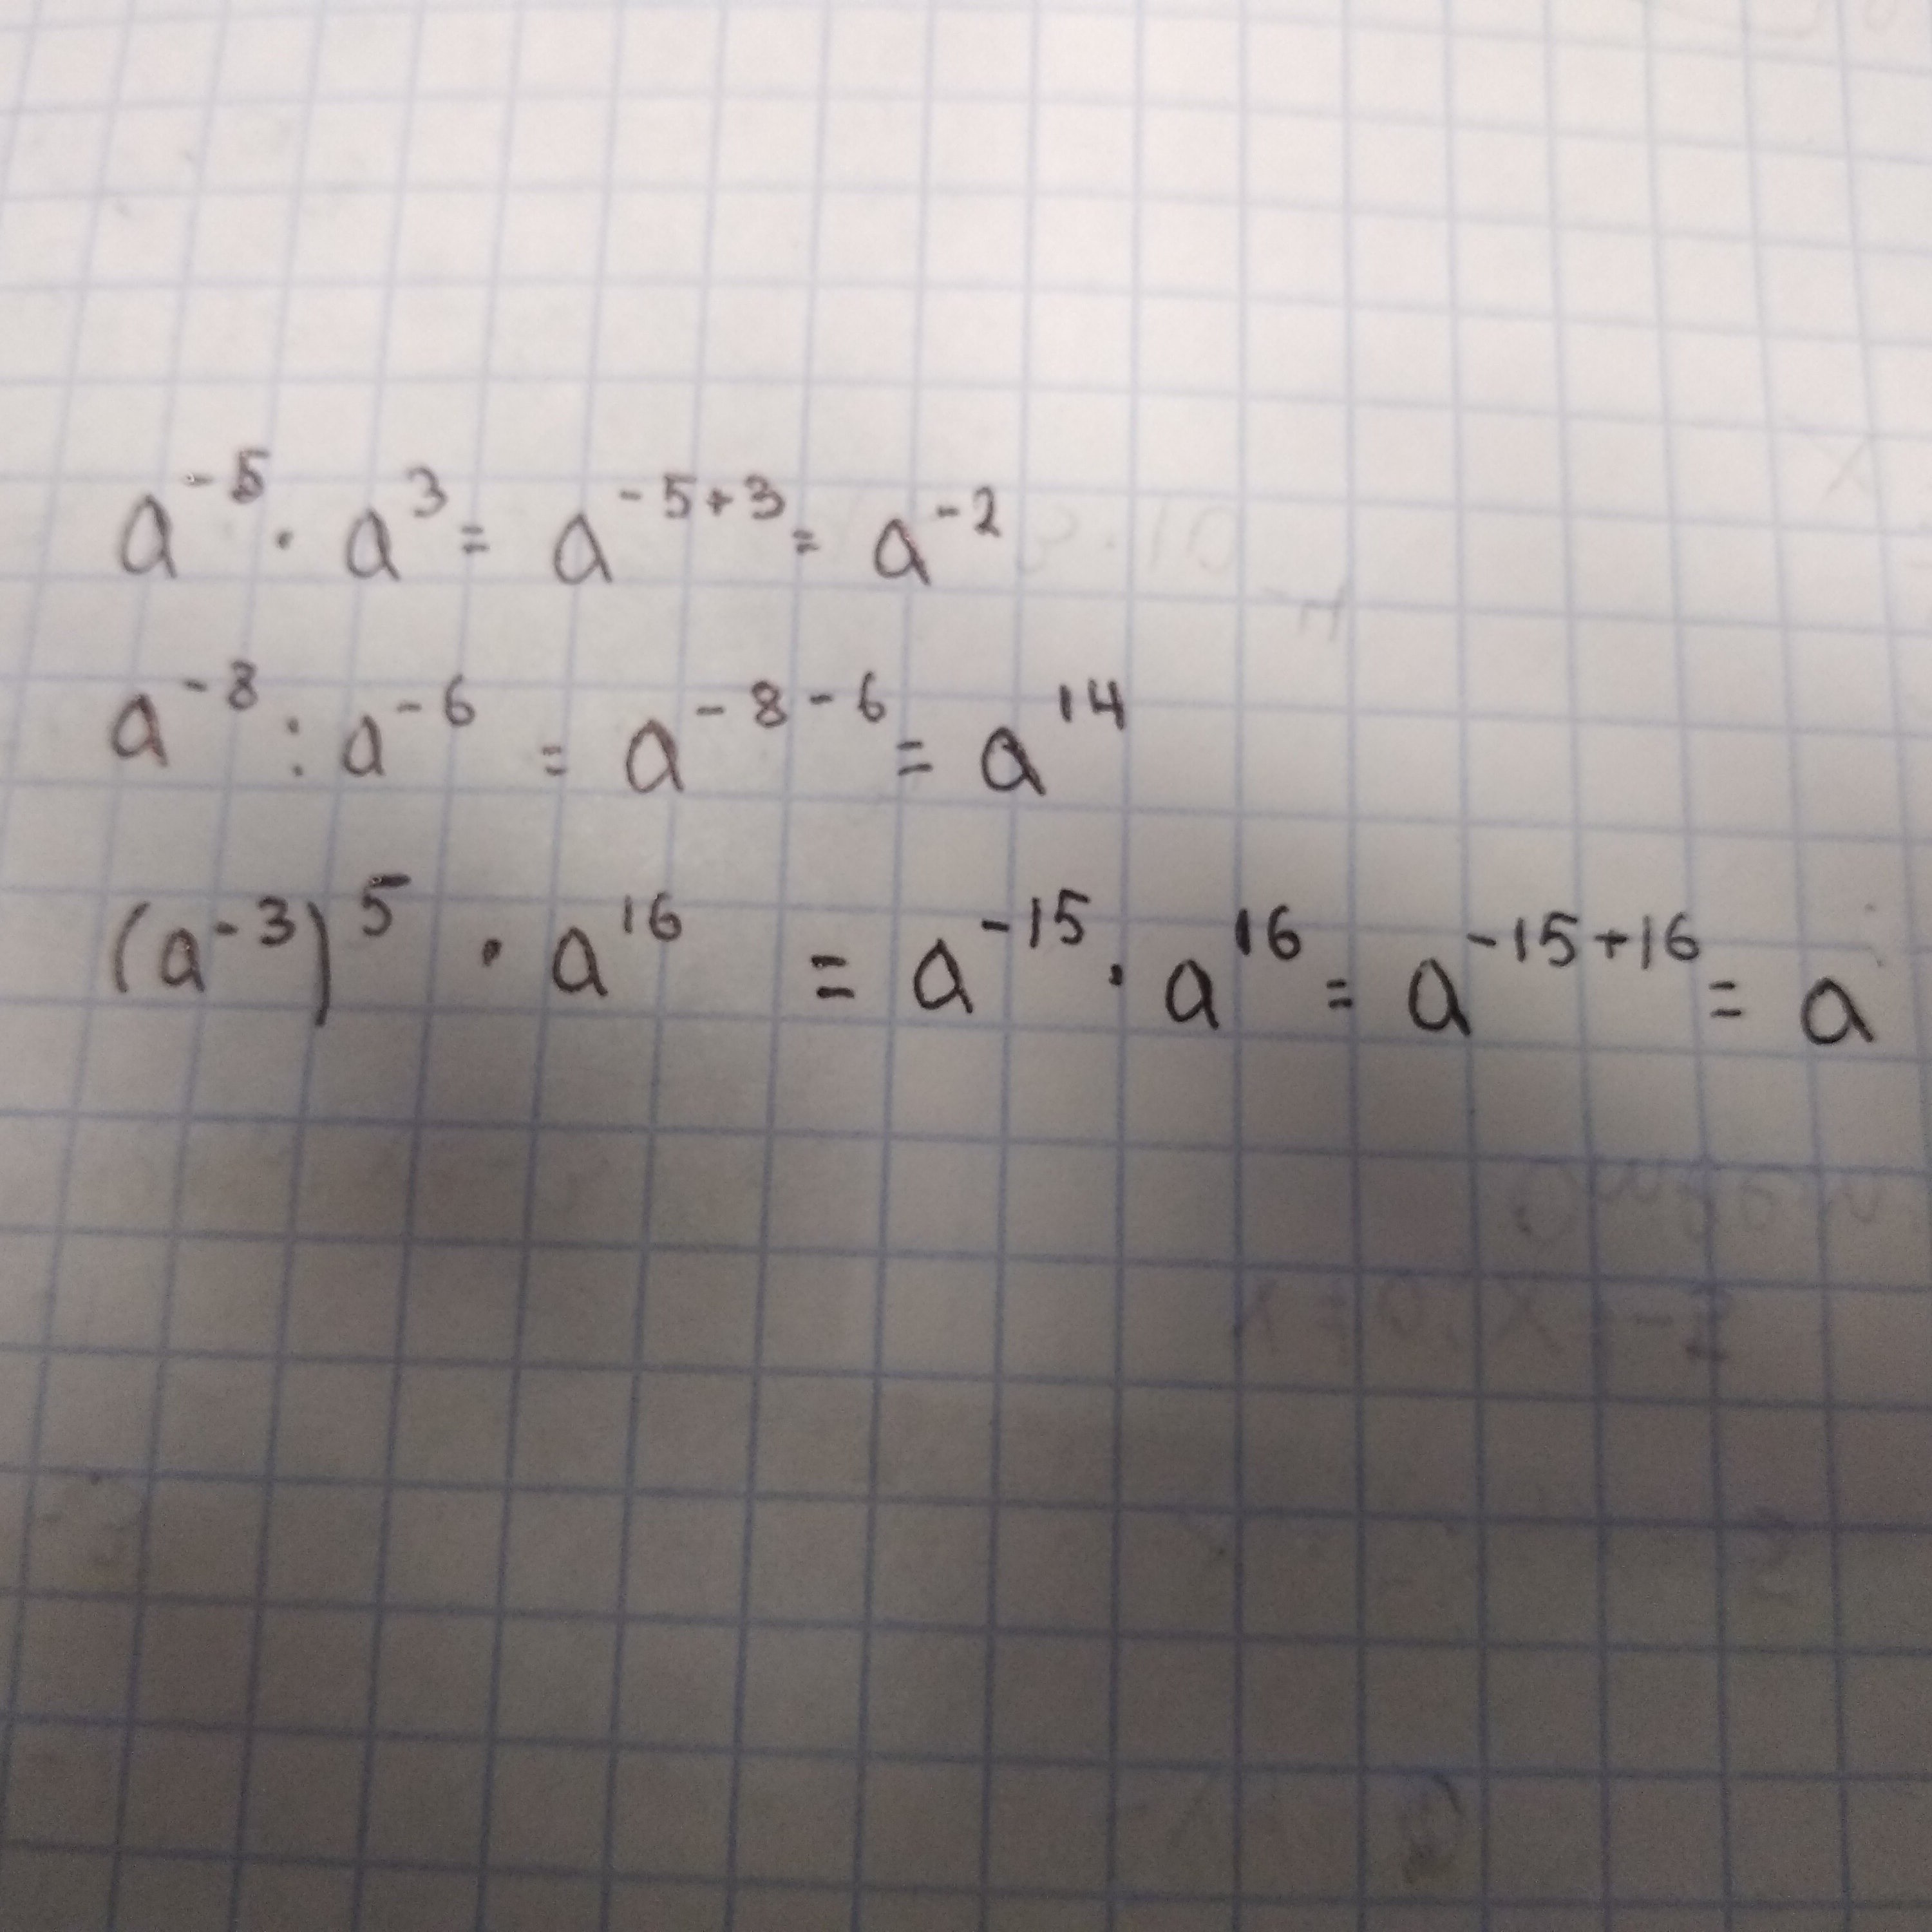 a⁻⁵ · a³ = a⁻⁵⁺³ = a⁻²
a⁻⁸ : a⁻⁶ = a⁻⁸⁻⁶ = a¹⁴
(a⁻³)⁵ · a¹⁶ = a⁻¹⁵ · a¹⁶ = a⁻¹⁵⁺¹⁶ = a